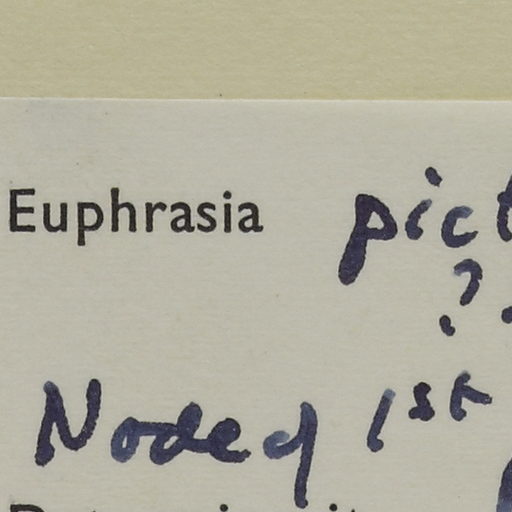 Euphrasia pict
?
Node of 1st